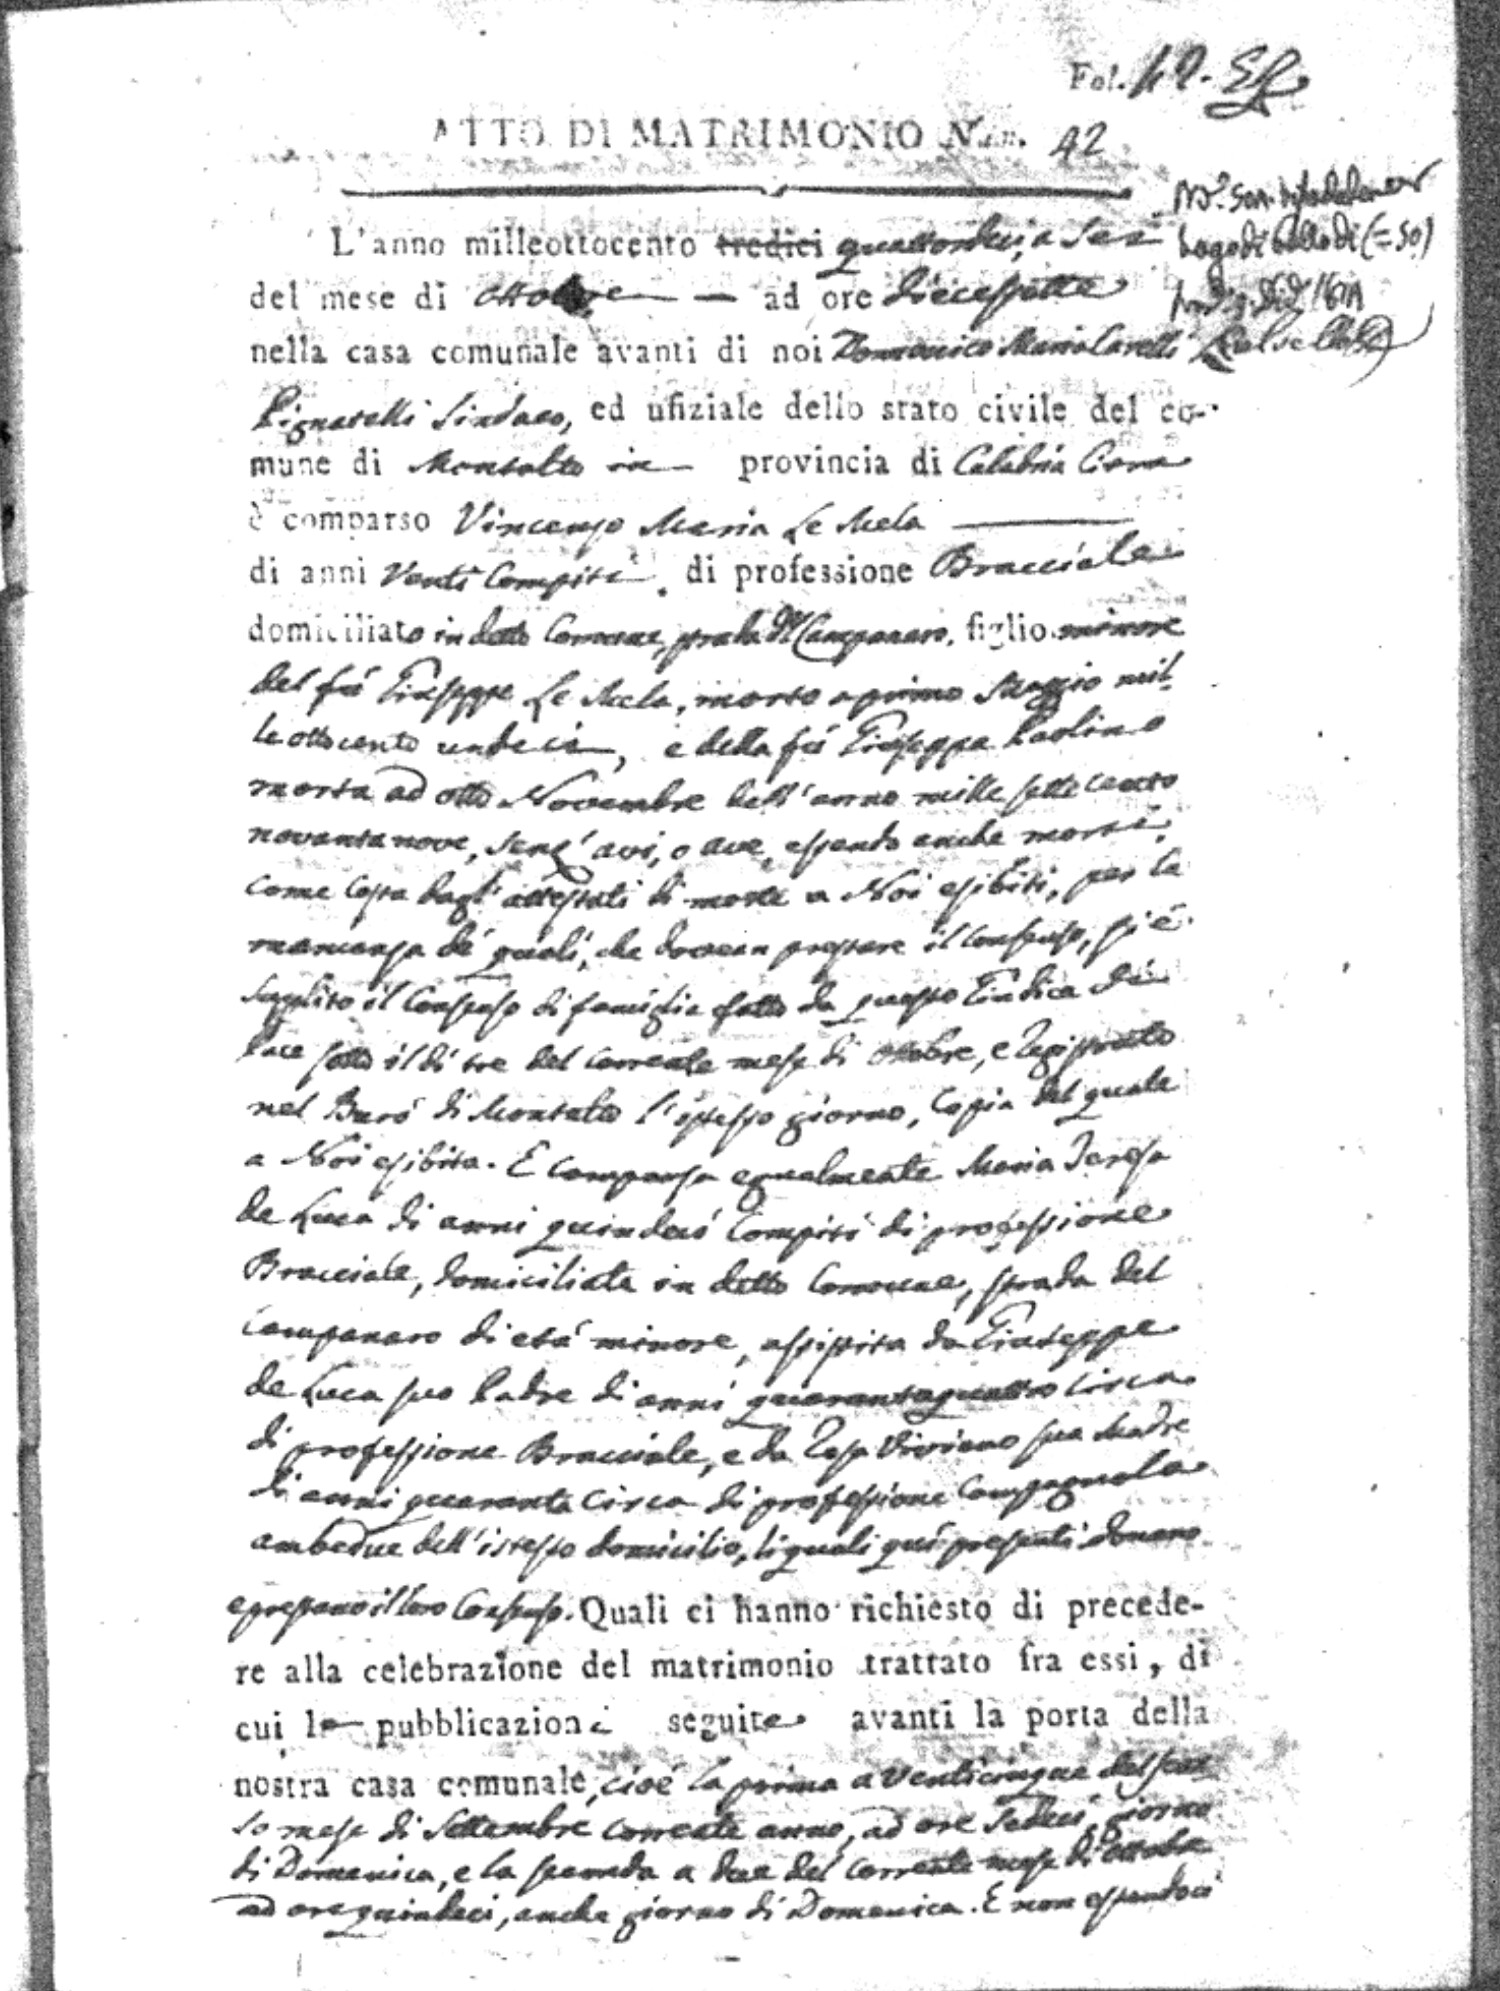 Fol. 42.
ATTO DI MATRIMONIO Num. 42
L'anno milleottocento tredici quattordici, a Sei
del mese di Ottobre ad ore diecessette
nella casa comunale avanti di noi Domenico Maria
Pignatelli Sindaco, ed ufiziale dello stato civile del co-
mune di Montalto in provincia di Calabria Citra
è comparso Vincenzo Maria Le Mela
di anni Venti Compiti, di professione Bracciale
domiciliato in detto Comune, strada del Campanaro, figlio minore
del fù Giuseppe Le Mela, morto a primo Maggio mil-
le ottocento undeci, e della fù Giuseppa Paolino
morta ad otto Novembre dell'anno mille sette cento
novanta nove, senz'avi, o ave, essendo anche morti,
come Costa dagl'attestati di morte a Noi esibiti, per la
mancanza de' quali, che dovean prestare il Consenso, si è
supplito il Consenso di famiglia fatto da questo Giudice di
Pace sotto il dì tre del corrente mese di Ottobre, e Registrato
nel Burò di Montalto l'istesso giorno, Copia del quale
a Noi esibita. E comparsa egualmente Maria Teresa
de Luca di anni quindeci Compiti di professione
Bracciale, domiciliata in detto Comune, strada del
Campanaro di età minore, assistita da Giuseppe
de Luca suo Padre di anni quarantaquattro circa
di professione Bracciale, e da Rosa Viviano sua Madre
di anni quaranta circa di professione Campagnola
ambedue dell'istesso domicilio, li quali quì presenti donano
e prestano il loro Consenso. Quali ci hanno richiesto di precede-
re alla celebrazione del matrimonio trattato fra essi, di
cui le pubblicazioni seguite avanti la porta della
nostra casa comunale, cioè la prima a Venticinque del scor-
so mese di Settembre corrente anno, ad ore Sedeci, giorno
di Domenica, e la seconda a due del corrente mese di Ottobre
ad ore quindeci, anche giorno di Domenica. E non essendoci